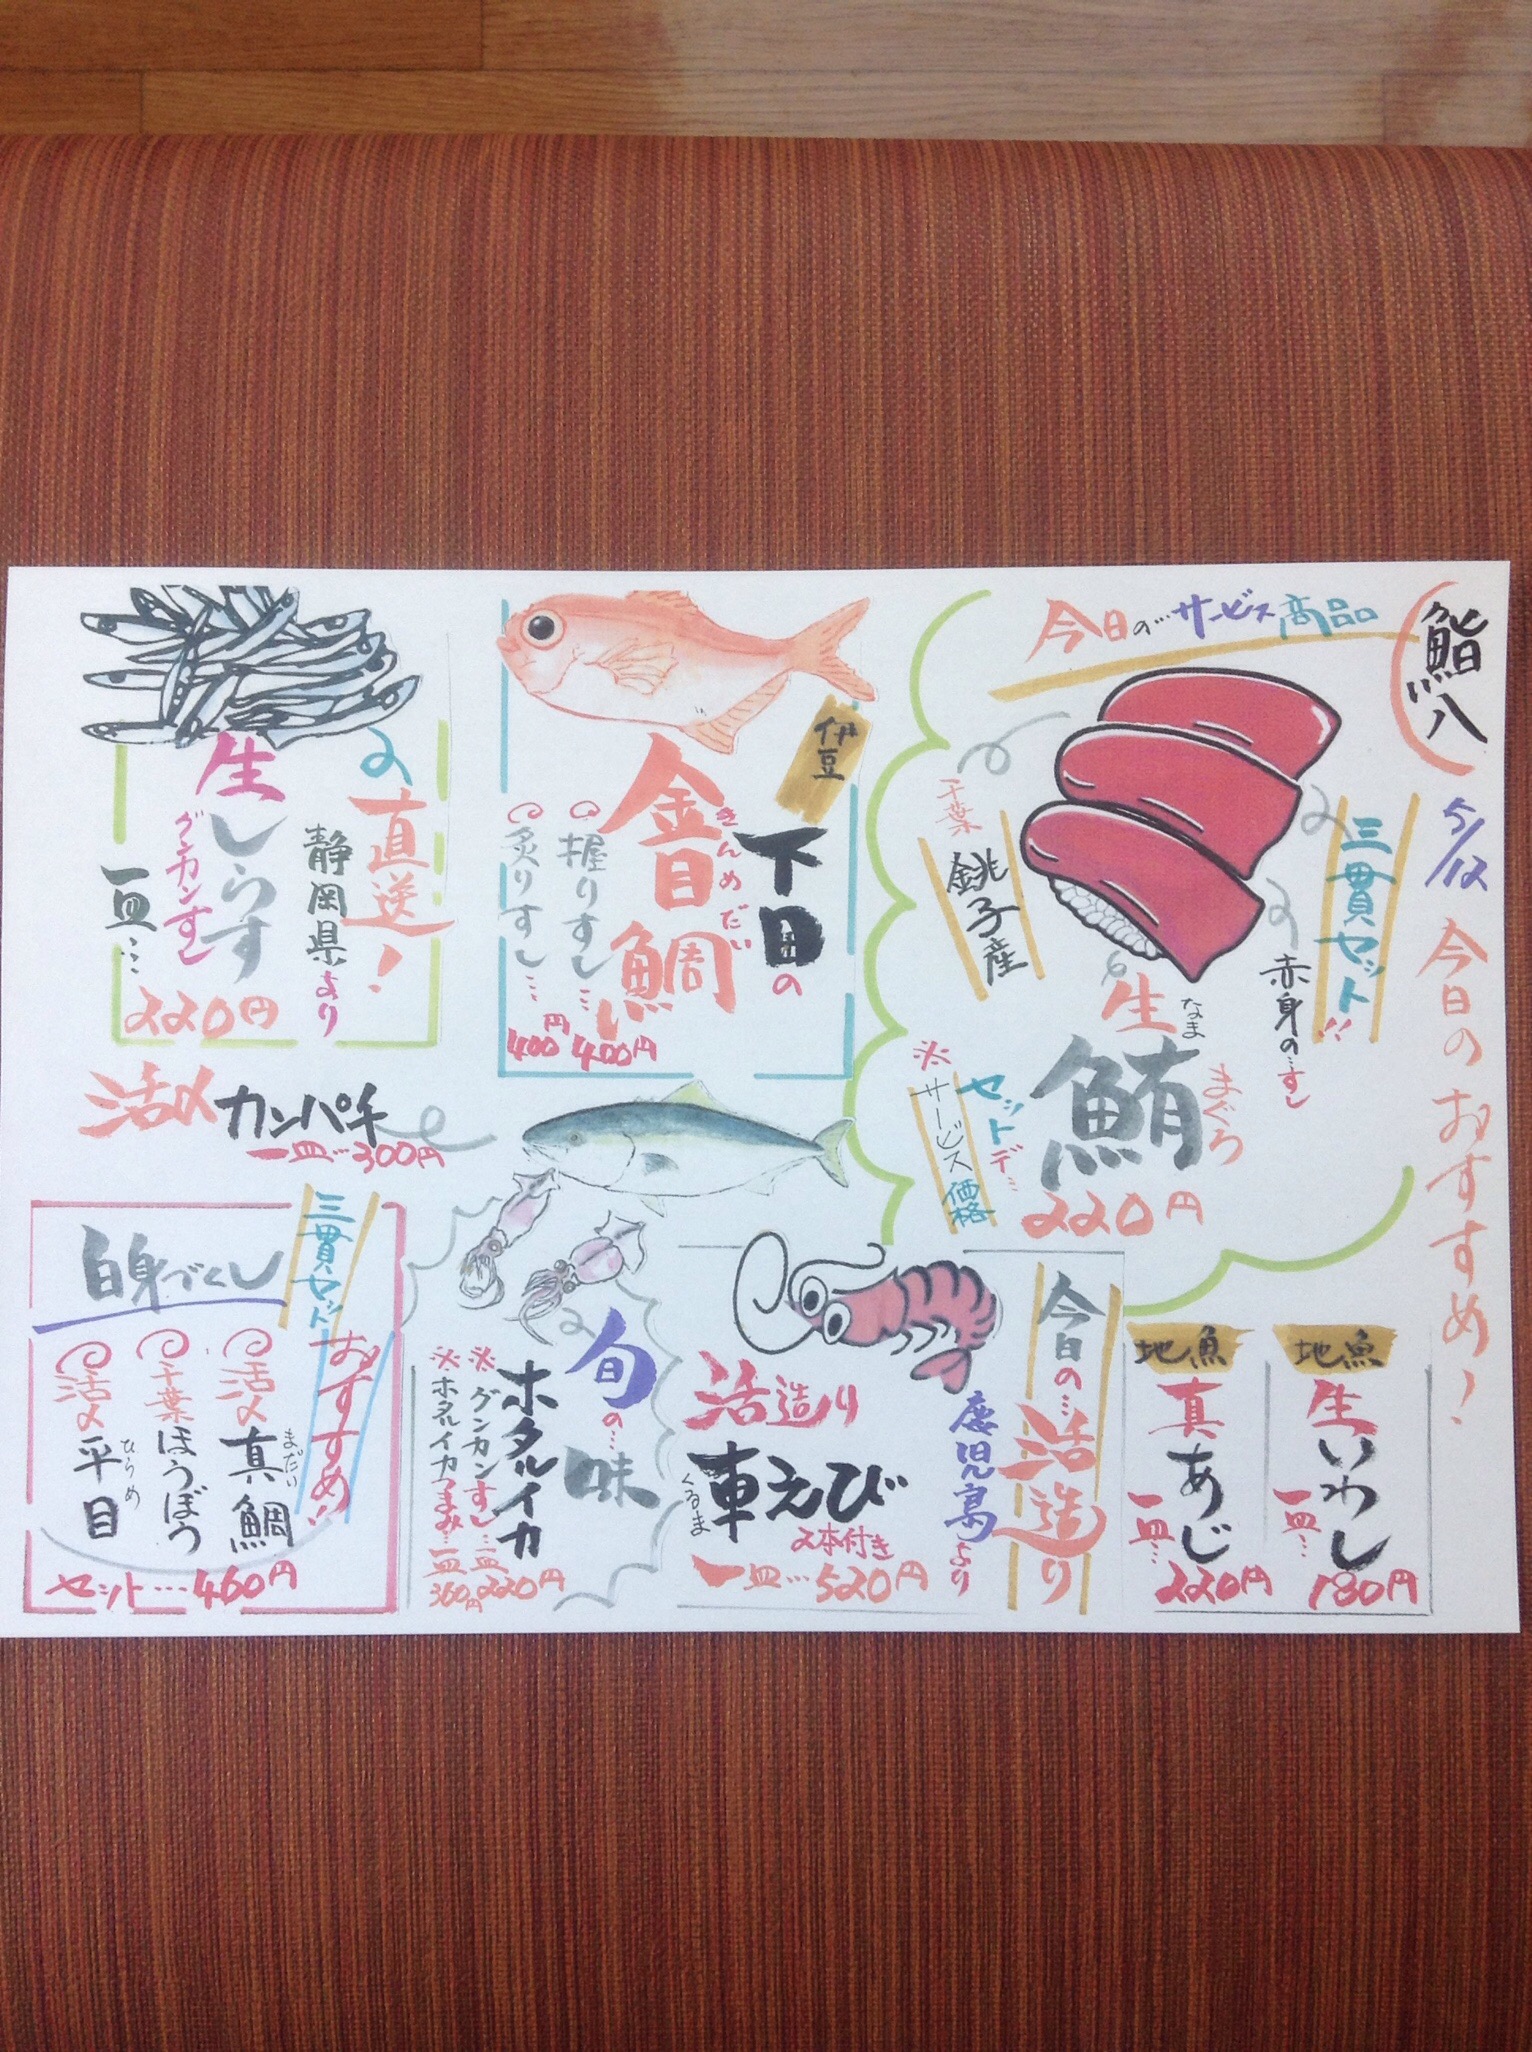 鮨八
5/12 今日のおすすめ!
今日の…サービス商品
三貫セット!!
赤身の…すし
生鮪
なままぐろ
千葉
銚子産
セットデ…
※サービス価格
220円
伊豆
下田の
金目鯛
きんめだい
握りすし…400円
炙りすし…400円
直送!
静岡県より
生しらす
グンカンすし
一皿…
220円
活〆カンパチ
一皿…300円
地魚
生いわし
一皿…
180円
地魚
真あじ
一皿…
220円
今日の…活造り
鹿児島より
活造り
車えび
くるま
2本付き
一皿…520円
旬の…味
ホタルイカ
※グンカンすし…一皿220円
※ホタルイカつまみ…一皿360円
三貫セット
おすすめ!
白身づくし
活〆真鯛
まだい
千葉ほうぼう
活〆平目
ひらめ
セット…460円